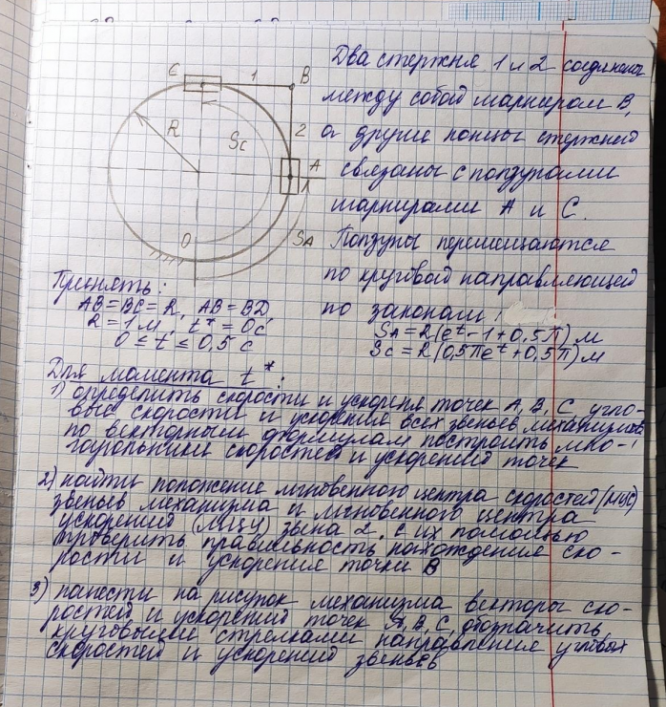 C 1 B
R Sc 2
A
O SA
Два стержня 1 и 2 соединены
между собой шарниром B,
а другие концы стержней
связаны с ползунами
шарнирами A и C.
Ползуны перемещаются
по круговой направляющей
по законам:
SA = R(e^t - 1 + 0,5π) м
Sc = R(0,5πe^t + 0,5π) м
Принять:
AB = BC = R, AB = BD
R = 1 м, t* = 0 с
0 ≤ t ≤ 0,5 с
Для момента t*:
1) определить скорости и ускорения точек A, B, C, угло-
вые скорости и ускорения всех звеньев механизма,
по векторным формулам построить мно-
гоугольники скоростей и ускорений точек
2) найти положение мгновенного центра скоростей (МЦС)
звеньев механизма и мгновенного центра
ускорений (МЦУ) звена 2. с их помощью
проверить правильность нахождения ско-
рости и ускорения точки B
3) нанести на рисунок механизма векторы ско-
ростей и ускорений точек A, B, C, обозначить
круговыми стрелками направления угловых
скоростей и ускорений звеньев